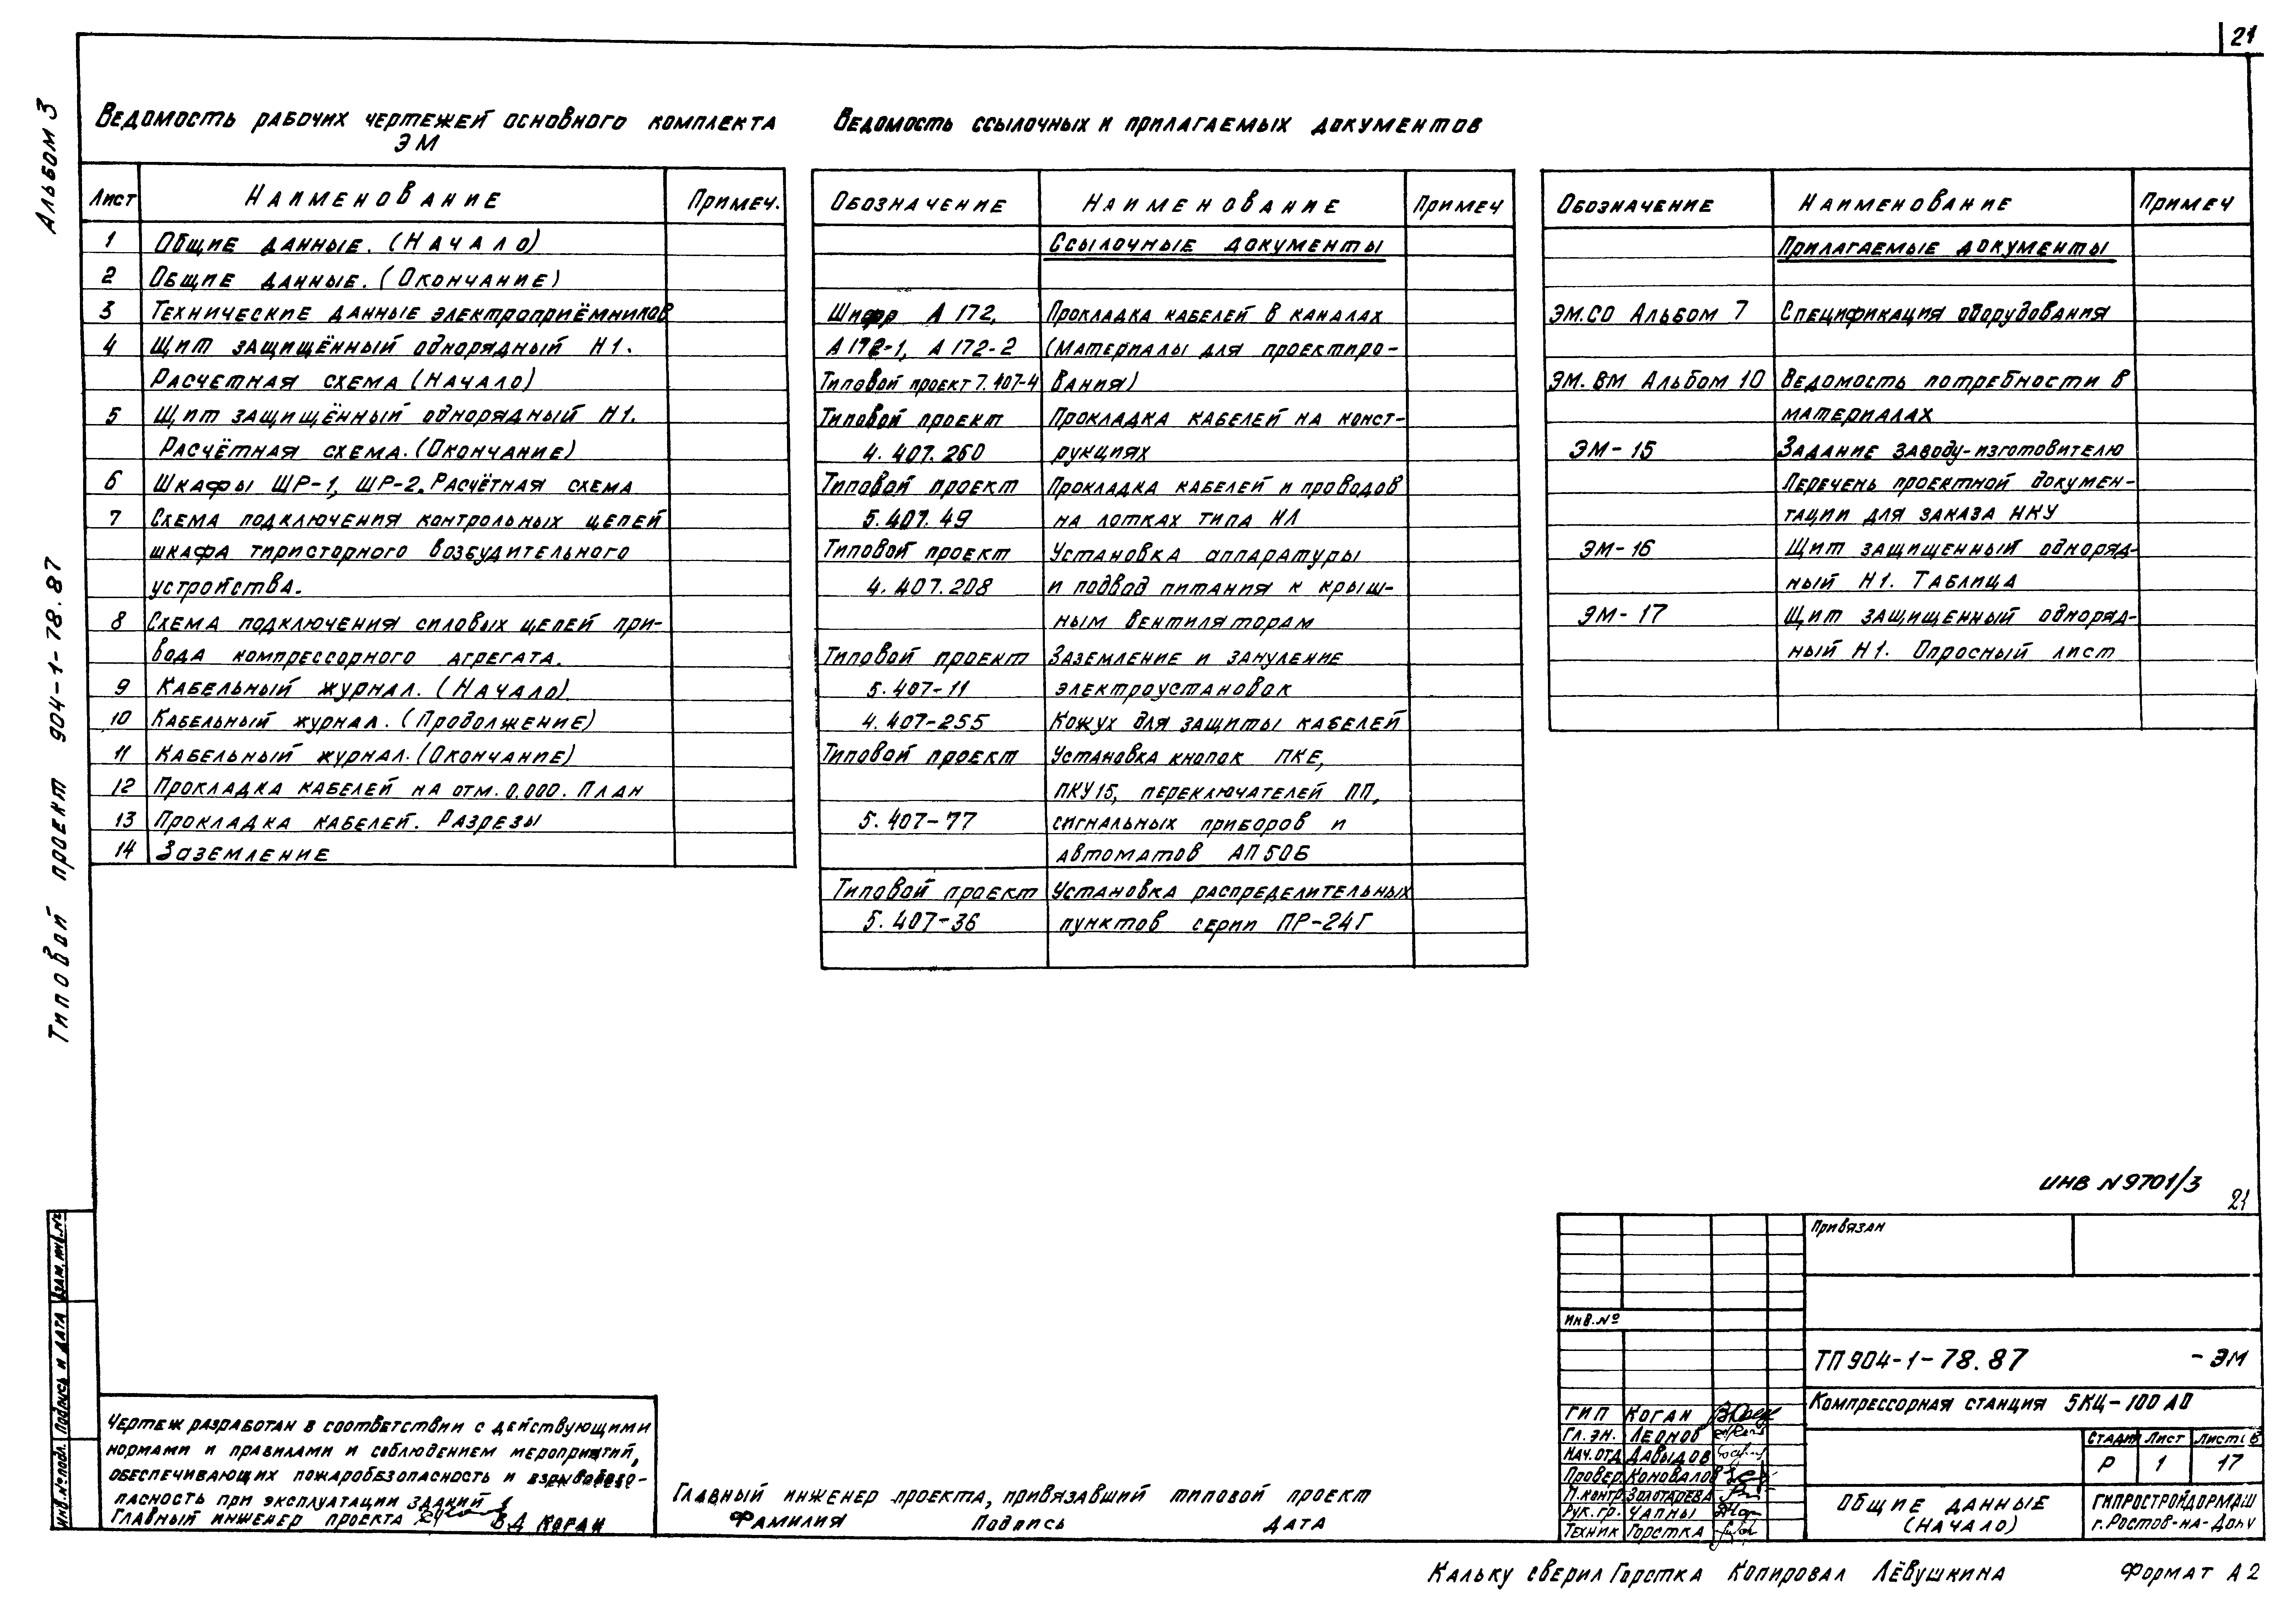 21
Альбом 3
Типовой проект 904-1-78.87
Ведомость рабочих чертежей основного комплекта
ЭМ
Лист Наименование Примеч.
1 Общие данные. (Начало)
2 Общие данные. (Окончание)
3 Технические данные электроприёмников
4 Щит защищённый однорядный Н1.
Расчетная схема (Начало)
5 Щит защищённый однорядный Н1.
Расчётная схема. (Окончание)
6 Шкафы ШР-1, ШР-2. Расчётная схема
7 Схема подключения контрольных цепей
шкафа тиристорного возбудительного
устройства.
8 Схема подключения силовых цепей при-
вода компрессорного агрегата.
9 Кабельный журнал. (Начало)
10 Кабельный журнал. (Продолжение)
11 Кабельный журнал. (Окончание)
12 Прокладка кабелей на отм. 0.000. План
13 Прокладка кабелей. Разрезы
14 Заземление
Ведомость ссылочных и прилагаемых документов
Обозначение Наименование Примеч
Ссылочные документы
Шифр А 172, Прокладка кабелей в каналах
А 172-1, А 172-2 (материалы для проектиро-
Типовой проект 7.407-4 вания)
Типовой проект Прокладка кабелей на конст-
4.407.260 рукциях
Типовой проект Прокладка кабелей и проводов
5.407.49 на лотках типа НЛ
Типовой проект Установка аппаратуры
4.407.208 и подвод питания к крыш-
ным вентиляторам
Типовой проект Заземление и зануление
5.407-11 электроустановок
4.407-255 Кожух для защиты кабелей
Типовой проект Установка кнопок ПКЕ,
ПКУ15, переключателей ПП,
5.407-77 сигнальных приборов и
автоматов АП50Б
Типовой проект Установка распределительных
5.407-36 пунктов серии ПР-24Г
Обозначение Наименование Примеч
Прилагаемые документы
ЭМ.СО Альбом 7 Спецификация оборудования
ЭМ.ВМ Альбом 10 Ведомость потребности в
материалах
ЭМ-15 Задание заводу-изготовителю
Перечень проектной докумен-
тации для заказа НКУ
ЭМ-16 Щит защищенный однoряд-
ный Н1. Таблица
ЭМ-17 Щит защищенный однoряд-
ный Н1. Опросный лист
ИНВ N 9701/3
21
Привязан
Инв.№
ТП 904-1-78.87 -ЭМ
Компрессорная станция 5КЦ-100 АО
ГИП Коган
Гл. эн. Леонов
Нач. отд Давыдов
Провер. Коновалов
Н.контр Золотарева
Рук. гр. Чапны
Техник Горстка
Стадия Лист Листов
Р 1 17
Общие данные
(Начало)
ГИПРОСТРОЙДОРМАШ
г. Ростов-на-Дону
Взам. инв. №
Подпись и дата
Инв. № подл.
Чертеж разработан в соответствии с действующими
нормами и правилами и соблюдением мероприятий,
обеспечивающих пожаробезопасность и взрывобезо-
пасность при эксплуатации зданий
Главный инженер проекта В.Д Коган
Главный инженер проекта, привязавший типовой проект
Фамилия Подпись Дата
Кальку сверил Горстка Копировал Лёвушкина Формат А2